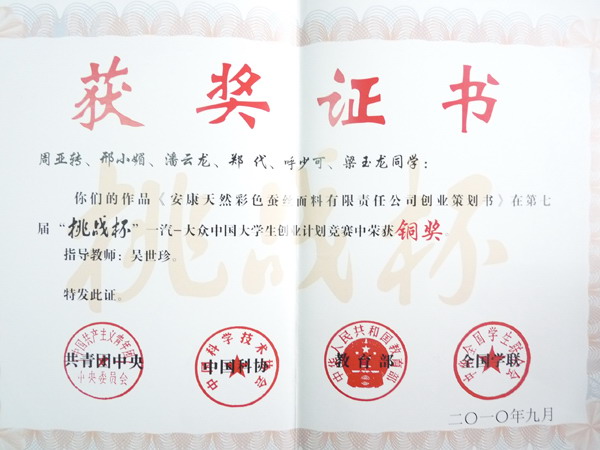 获奖证书
周亚转、邢小娟、潘云龙、郑 代、呼少可、梁玉龙同学：
你们的作品《安康天然彩色蚕丝面料有限责任公司创业策划书》在第七
届“挑战杯”一汽-大众中国大学生创业计划竞赛中荣获铜奖。
指导教师：吴世珍。
特发此证。
共青团中央 中国科协 教育部 全国学联
中国共产主义青年团 中国科学技术协会 中华人民共和国教育部 中华全国学生联合会
中央委员会
二〇一〇年九月
挑战杯